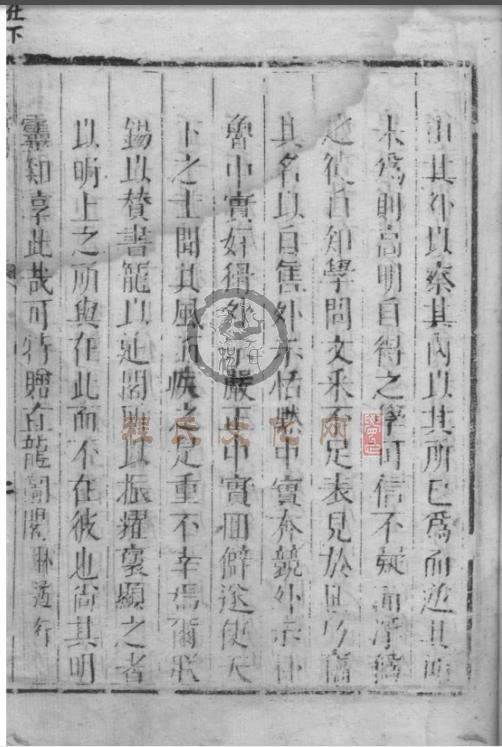 由其外以察其內以其所已爲而逆其所
未爲則高明自得之學可信不疑而浮僞
之徒自知學問文采不足表見於世乃竊
其名以自售外示恬默中實奔競外示朴
魯中實奸猾外示嚴正中實回僻遂使天
下之士聞其風而疾之是重不幸焉爾朕
錫以贊書寵以延閣所以振耀褒顯之者
以明上之所與在此而不在彼也尚其明
靈知享此哉可特贈直龍圖閣 林遹行
程氏文化网